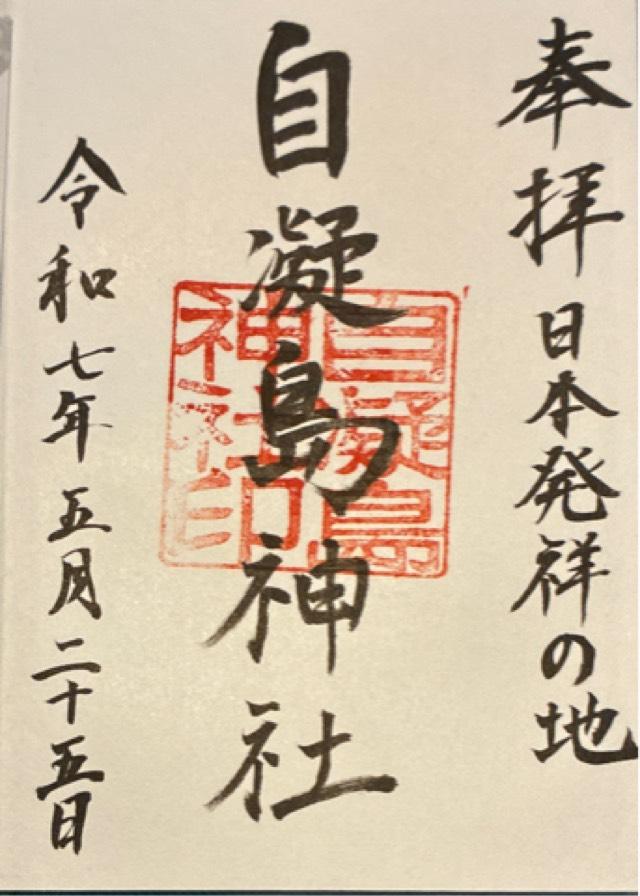 奉拝 日本発祥の地
自凝島神社
自凝島
神社印
令和七年五月二十五日